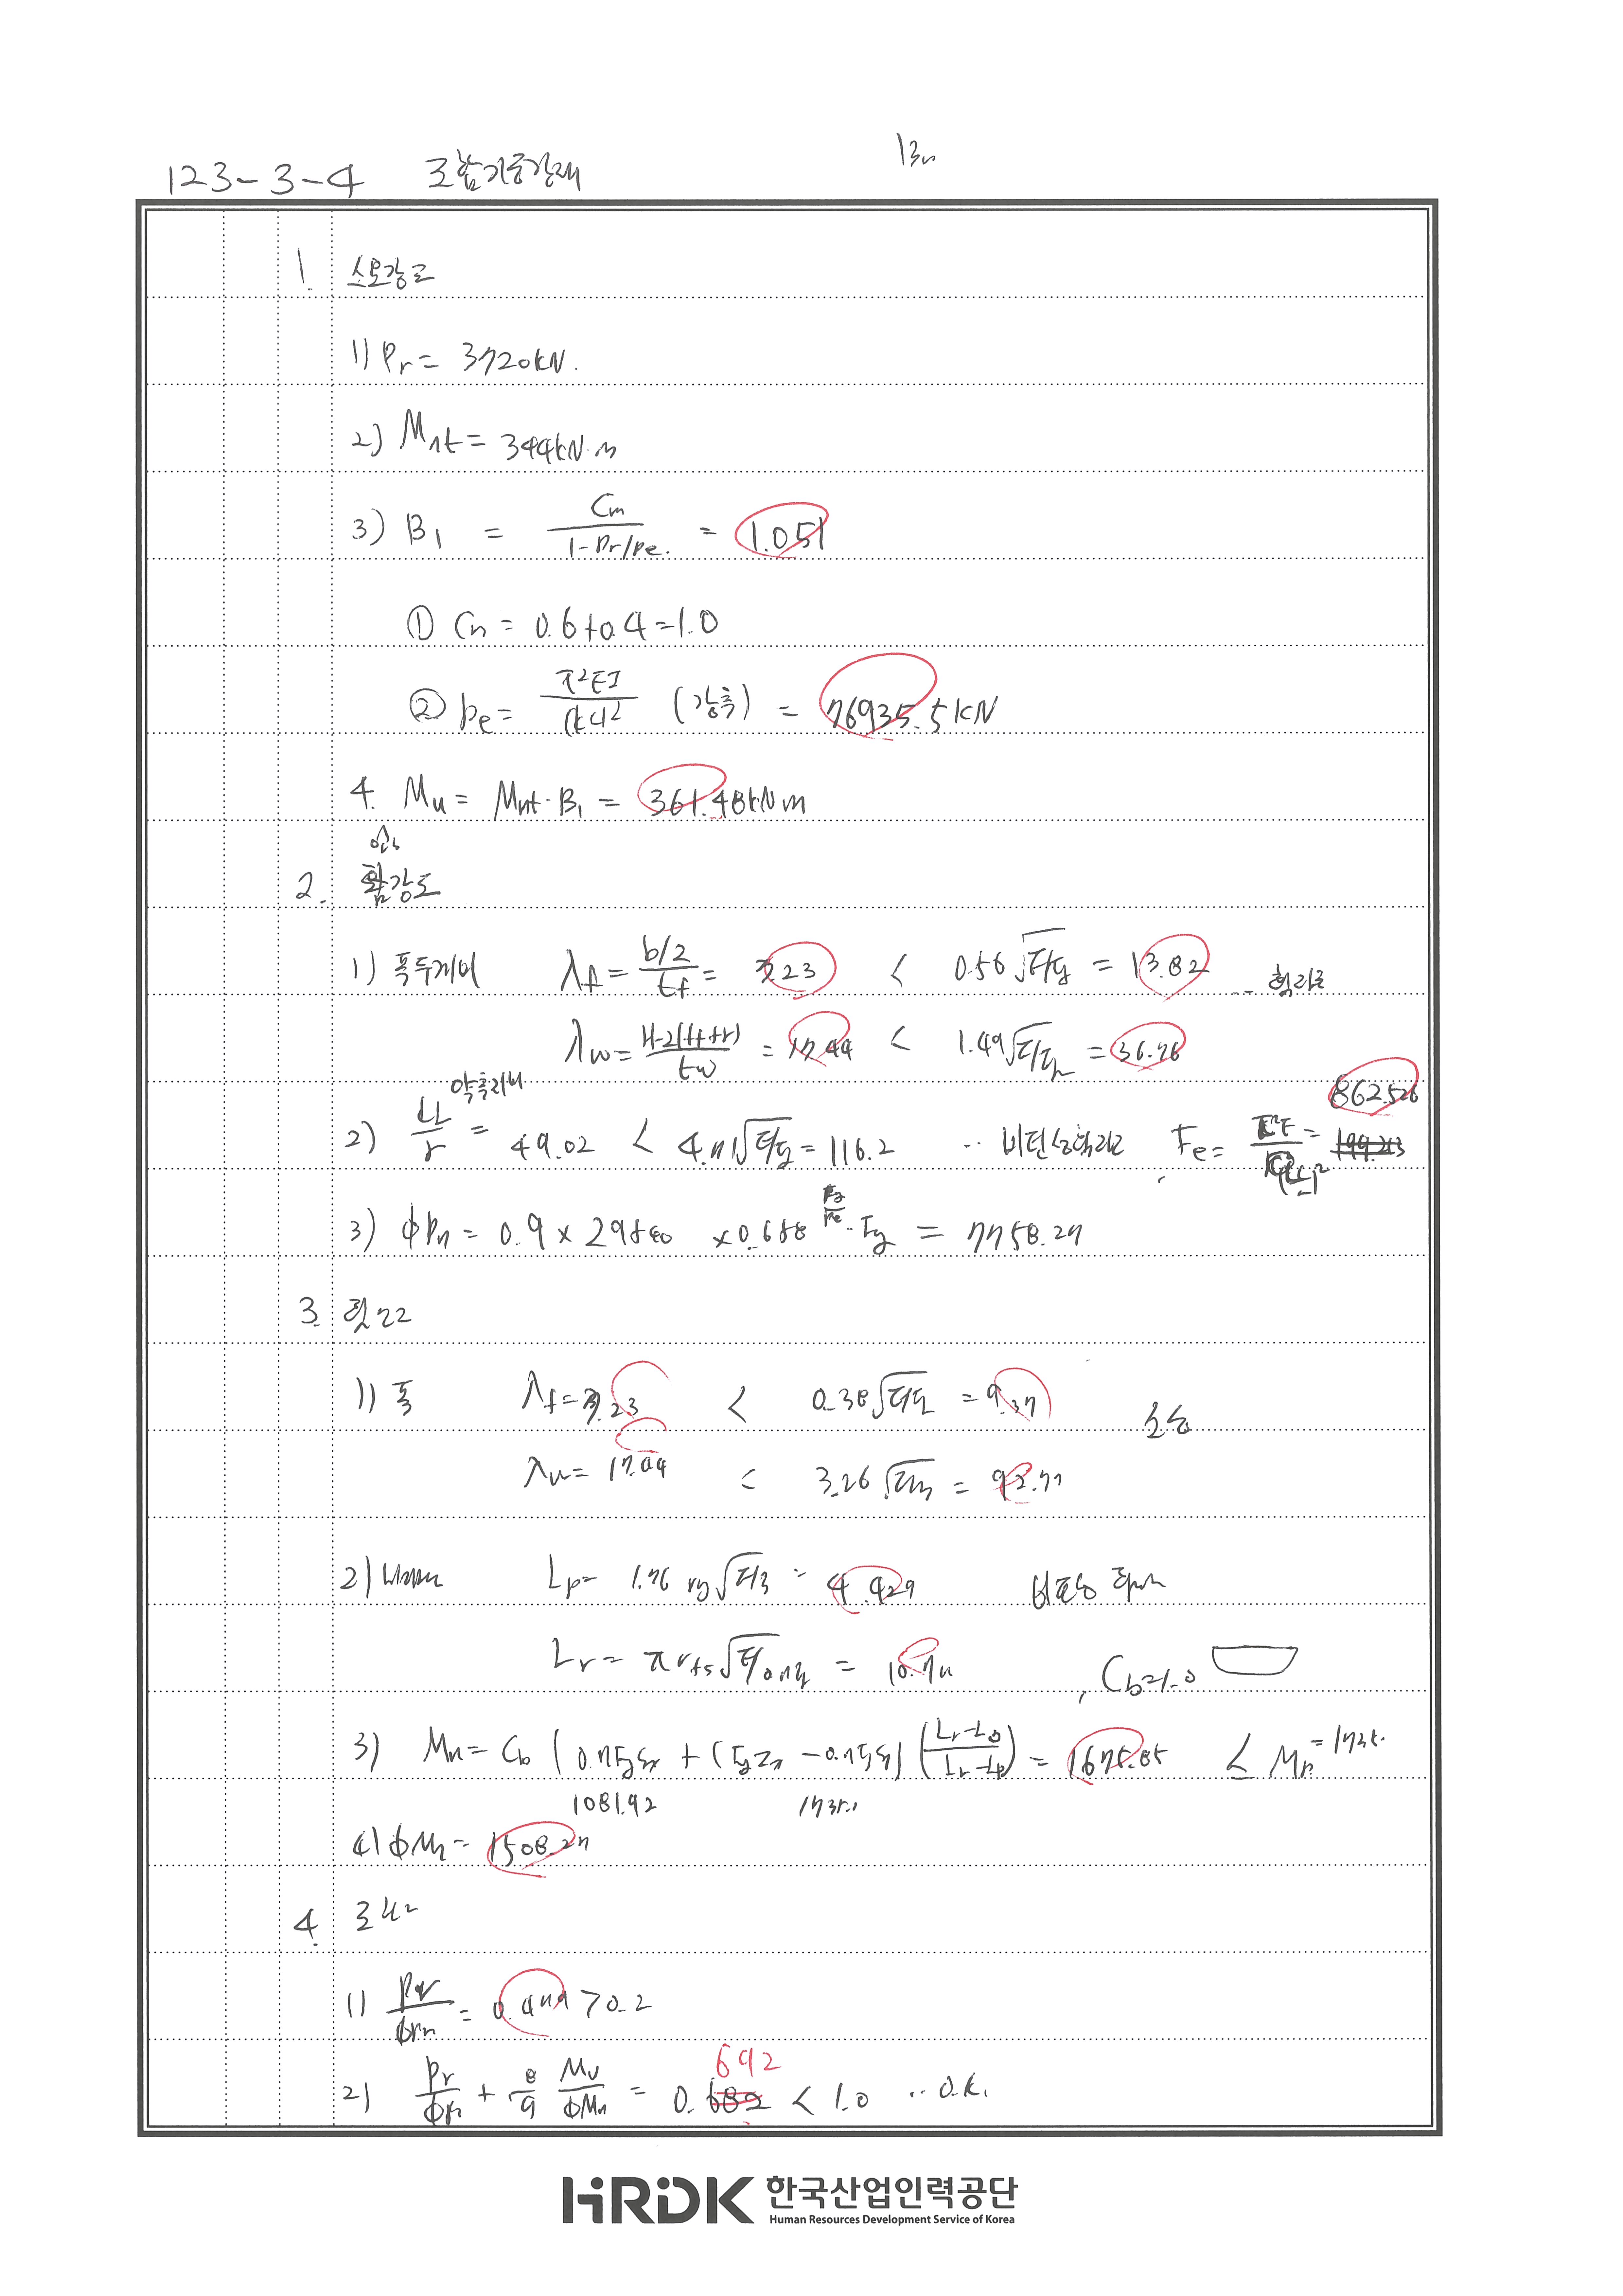 123-3-4 조합기둥강재 13n
1. 소요강도
1) Pr = 3720kN.
2) Mnt = 344kN·m
3) B1 = Cm / (1-Pr/Pe) = 1.051
① Cm = 0.6+0.4=1.0
② Pe = π²EI / (kL)² (강축) = 76935.5kN
4. Mu = Mnt·B1 = 361.48kN·m
압축
2. 강도
1) 폭두께비 λf = (b/2)/tf = 7.23 < 0.56√E/Fy = 13.82 ..
λw = (H-2(tf+r))/tw = 17.44 < 1.49√E/Fy = 36.76
약축지배 862.526
2) kL/r = 49.02 < 4.71√E/Fy = 116.2 .. 비탄성좌굴 Fe = π²E/(kL/r)² =
3) φPn = 0.9 × 29580 × 0.658^(Fy/Fe)·Fy = 7758.27
3. 휨강도
1) 폭 λf = 7.23 < 0.38√E/Fy = 9.37
λw = 17.44 < 3.26√E/Fy = 92.77
2) Lp = 1.76 ry√E/Fy = 4.429 비탄성
Lr = π rts√E/0.7Fy = 10.7 , Cb=1.0
3) Mn = Cb (0.7FySx + (FyZx - 0.7FySx)((Lr-Lb)/(Lr-Lp)) = 1675.85 < Mp = 1735.
1081.92 1735.1
4) φMn = 1508.27
4.
1) Pr/φPn = 0.479 > 0.2
692
2) Pr/φPn + 8/9 Mu/φMn = 0.682 < 1.0 .. O.K.
HRDK 한국산업인력공단
Human Resources Development Service of Korea